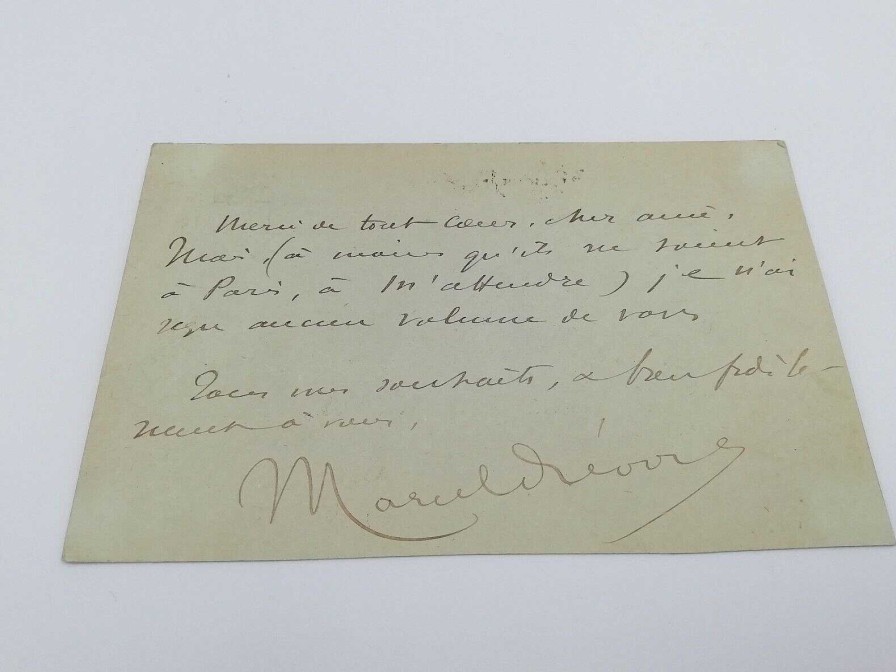 Merci de tout cœur, cher ami,
Mais, (à moins qu'ils ne soient
à Paris, à m'attendre) je n'ai
reçu aucun volume de vous
Tous mes souhaits, & bien fidèle-
ment à vous,
Marcel Prévost